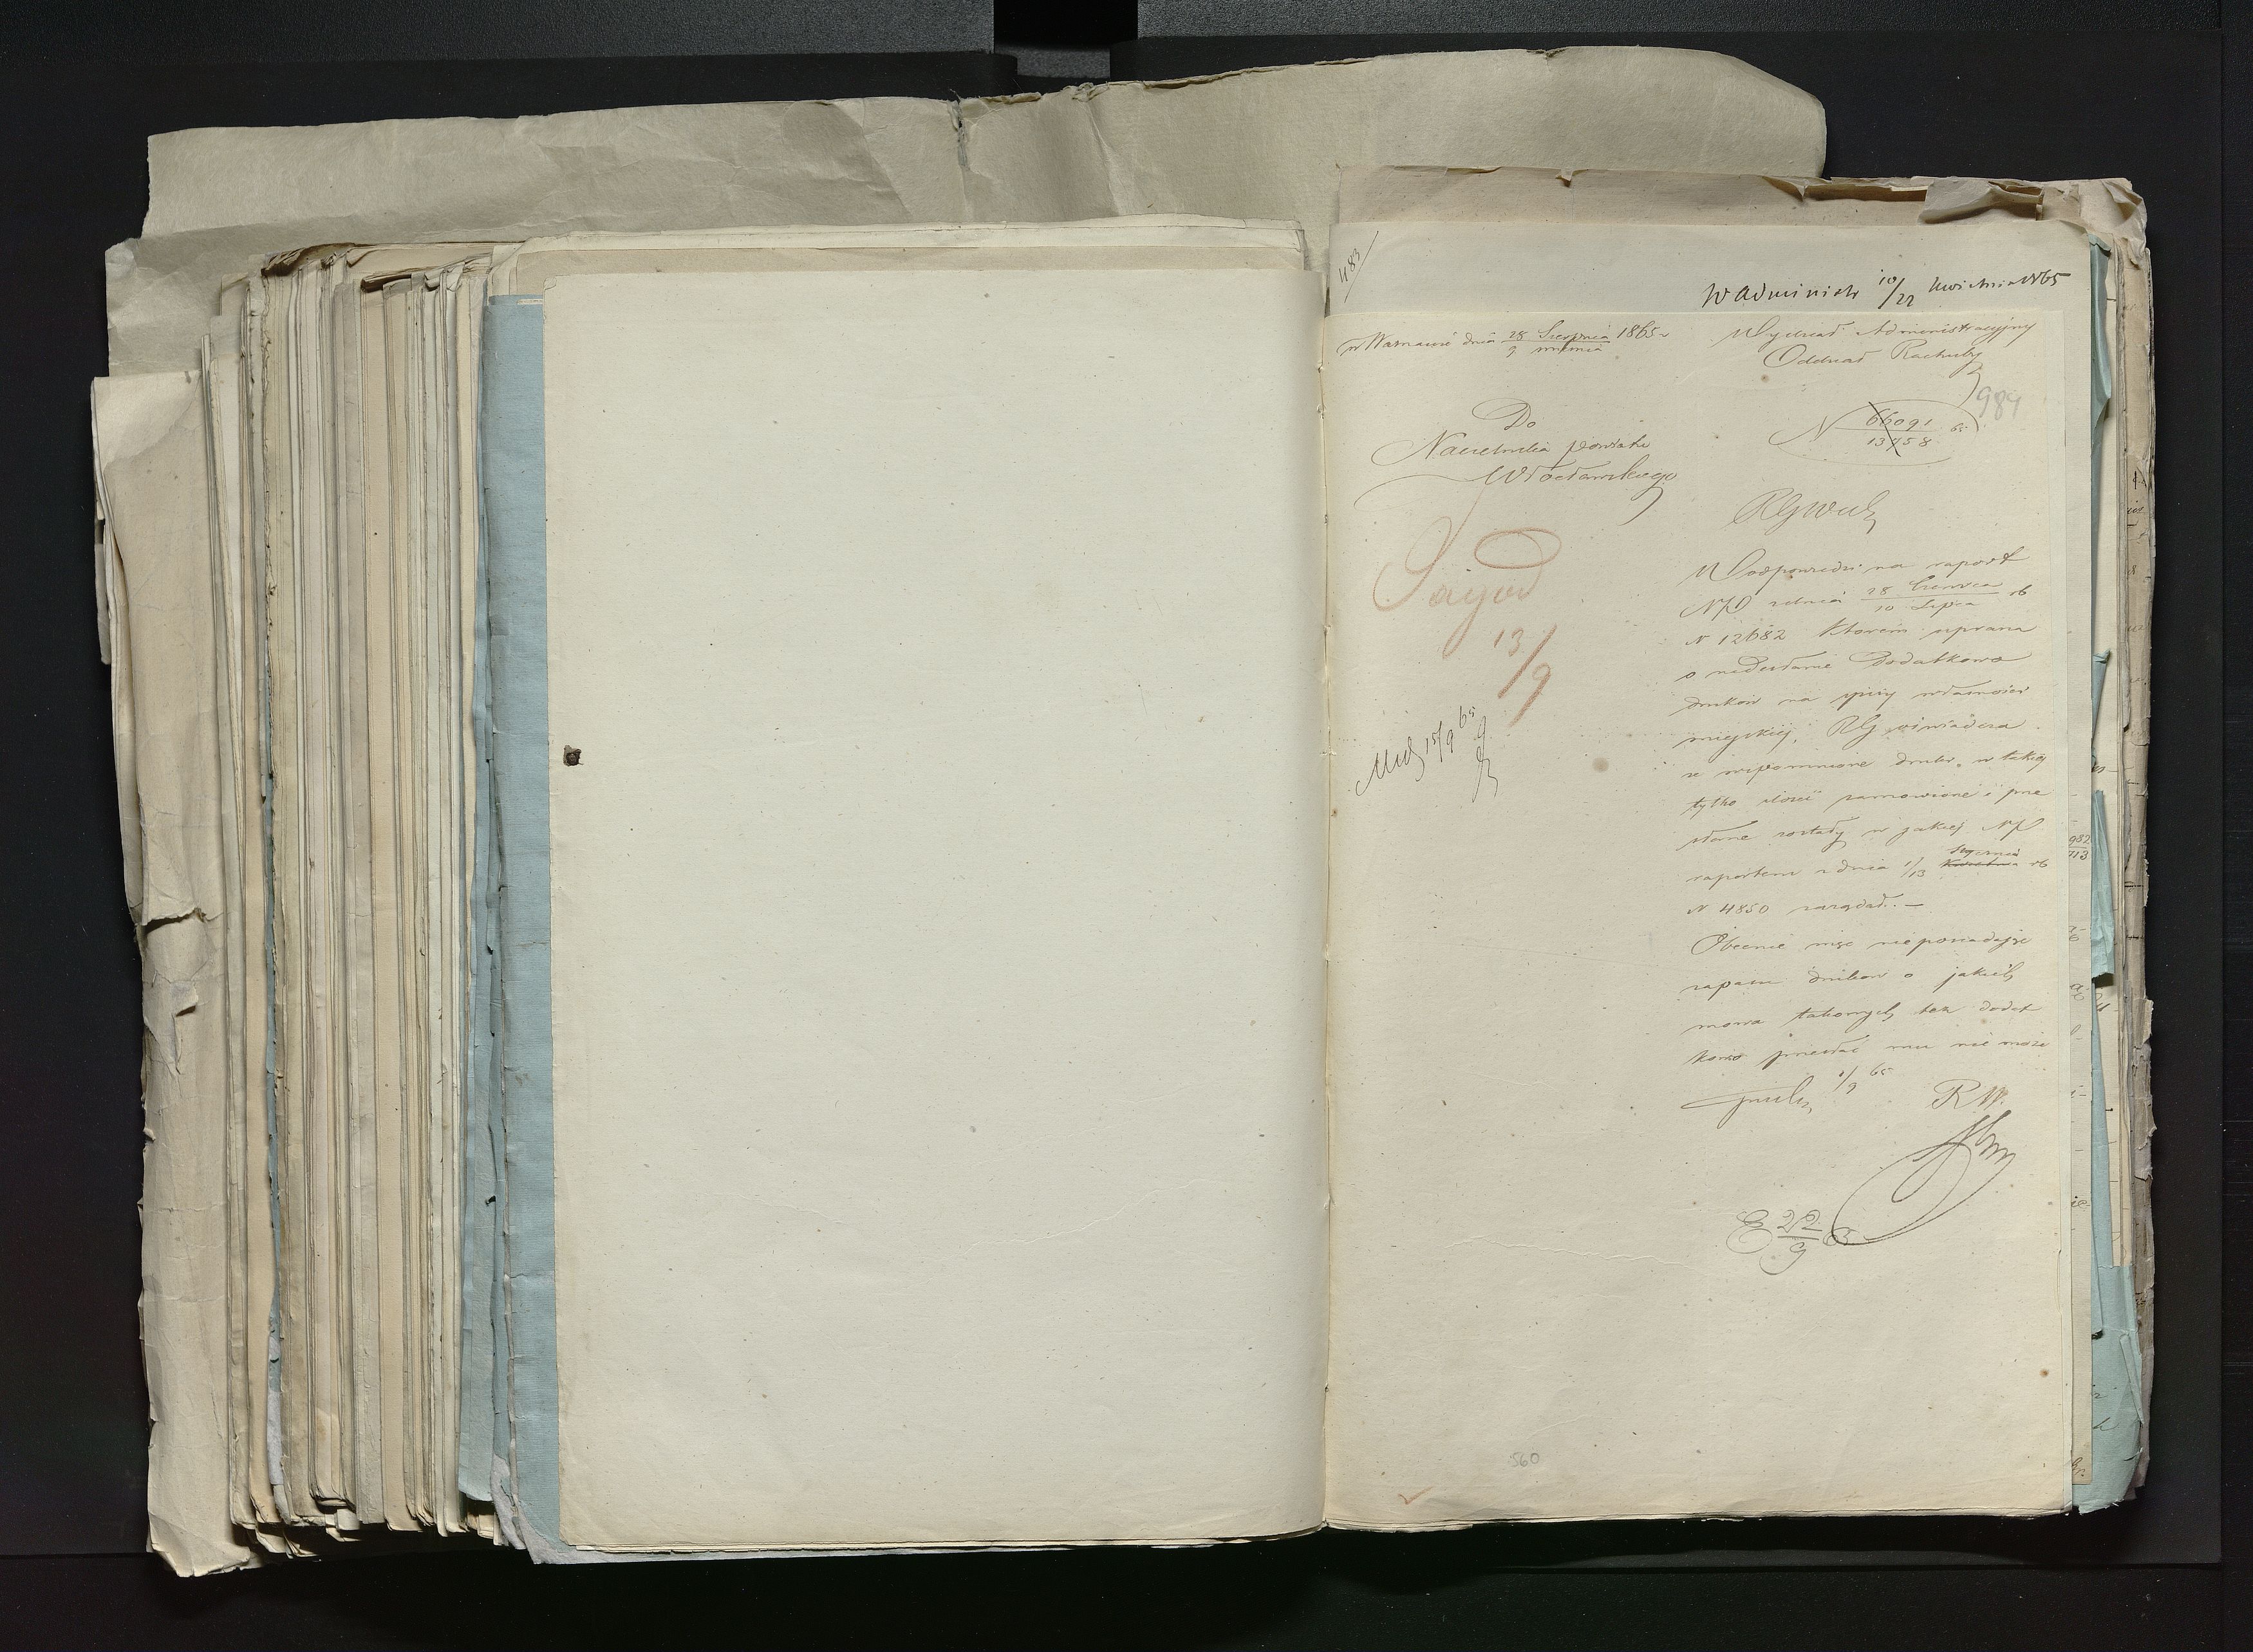 483
W Adminich 10/22 kwietnia 1865
w Warszawie dnia 28 Sierpnia / 9 września 1865 r
Wydział Administracyjny
Oddział Rachuby
984
N 66091 / 13458 65
Do
Naczelnika powiatu
Włocławskiego
W odpowiedzi na raport
NP z dnia 28 Czerwca / 10 Lipca rb
N 12682 którem uprasza
o nadesłanie Dodatkowo
druków na spisy własności
miejskiej, RG oświadcza
że wspomnione druki w takiej
tylko ilości zamówione i prze
słane zostały w jakiej NP
raportem z dnia 1/13 Stycznia rb
N 4850 zażądał. —
Obecnie więc nieposiadając
zapasu druków o jakich
mowa takowych też dodat
kowo przesłać mu nie może
1/9 65
R W.
13/9
15/9 65
E 22/9 65
560
982
713